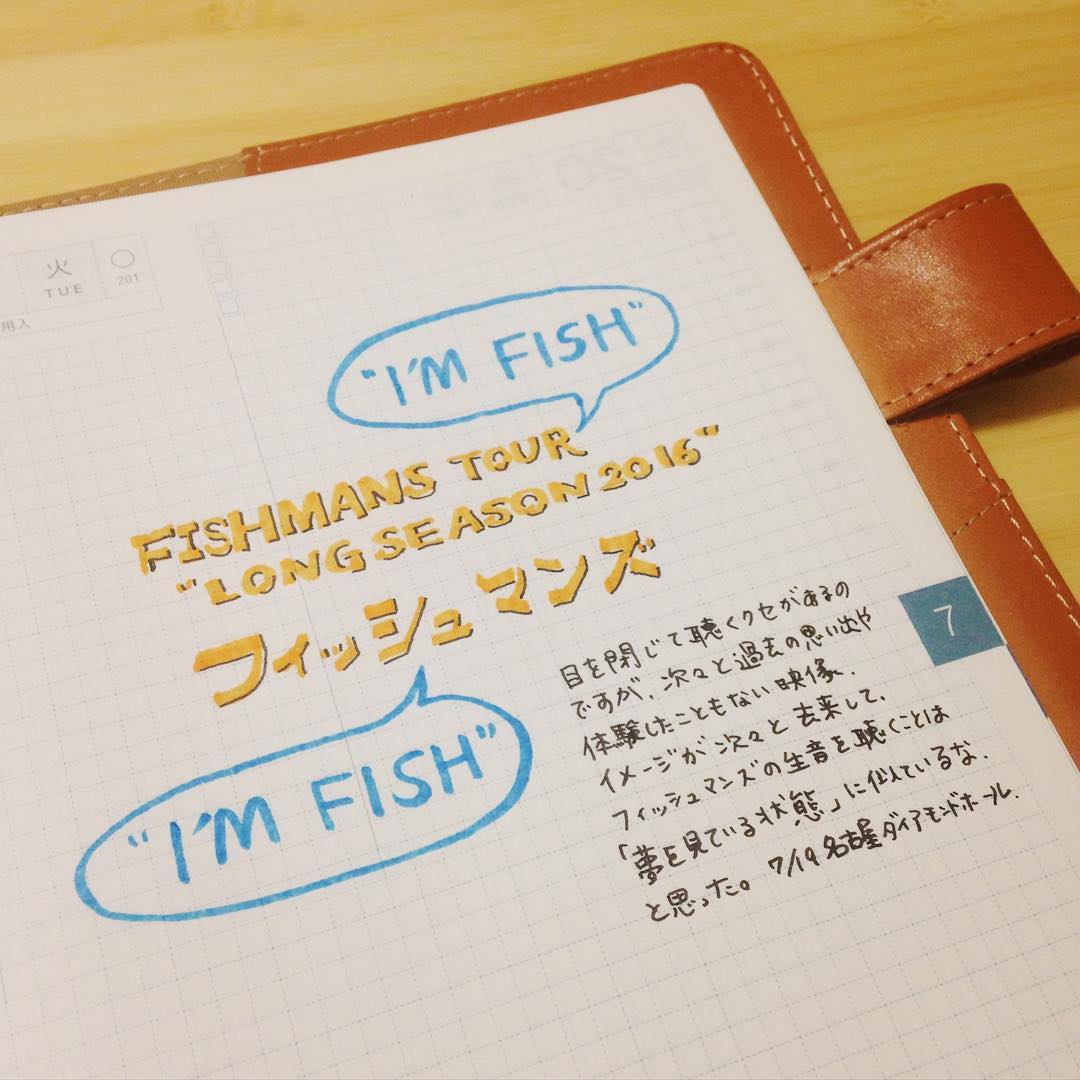 火
TUE
201
用入
"I'M FISH"
FISHMANS TOUR
"LONG SEASON 2016"
フィッシュマンズ
"I'M FISH"
7
目を閉じて聴くクセがあるの
ですが、次々と過去の思い出や
体験したこともない映像、
イメージが次々と去来して、
フィッシュマンズの生音を聴くことは
「夢を見ている状態」に似ているな、
と思った。 7/19 名古屋ダイアモンドホール.